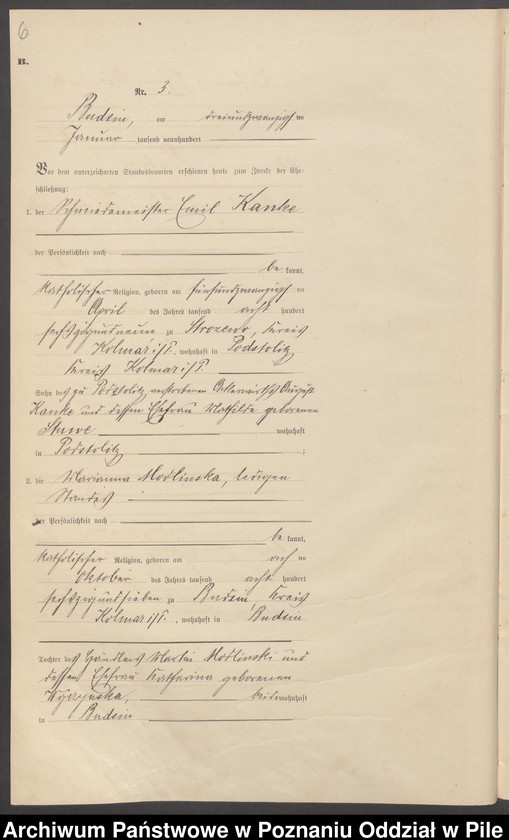 6
B.
Nr. 3.
Budsin, am dreiundzwanzigsten
Januar tausend neunhundert
Vor dem unterzeichneten Standesbeamten erschienen heute zum Zwecke der Ehe-
schließung:
1. der Schmiedemeister Emil Kanke
der Persönlichkeit nach
be kannt,
katholischer Religion, geboren am fünfundzwanzigsten
April des Jahres tausend acht hundert
sechszigundneun zu Strozewo, Kreis
Kolmar i/P., wohnhaft in Podstolitz
Kreis Kolmar i/P.
Sohn des zu Podstolitz verstorbenen Ackerwirths August
Kanke und dessen Ehefrau Mathilde geborenen
wohnhaft
in Podstolitz ;
2. die Marianna Modlinska, ledigen
Standes
der Persönlichkeit nach
be kannt,
katholischer Religion, geboren am ten
Oktober des Jahres tausend acht hundert
sechszigundsieben zu Budsin, Kreis
Kolmar i/P., wohnhaft in Budsin
Tochter des Händlers Martin Modlinski und
dessen Ehefrau Katharina geborenen
beide wohnhaft
in Budsin
Archiwum Państwowe w Poznaniu Oddział w Pile